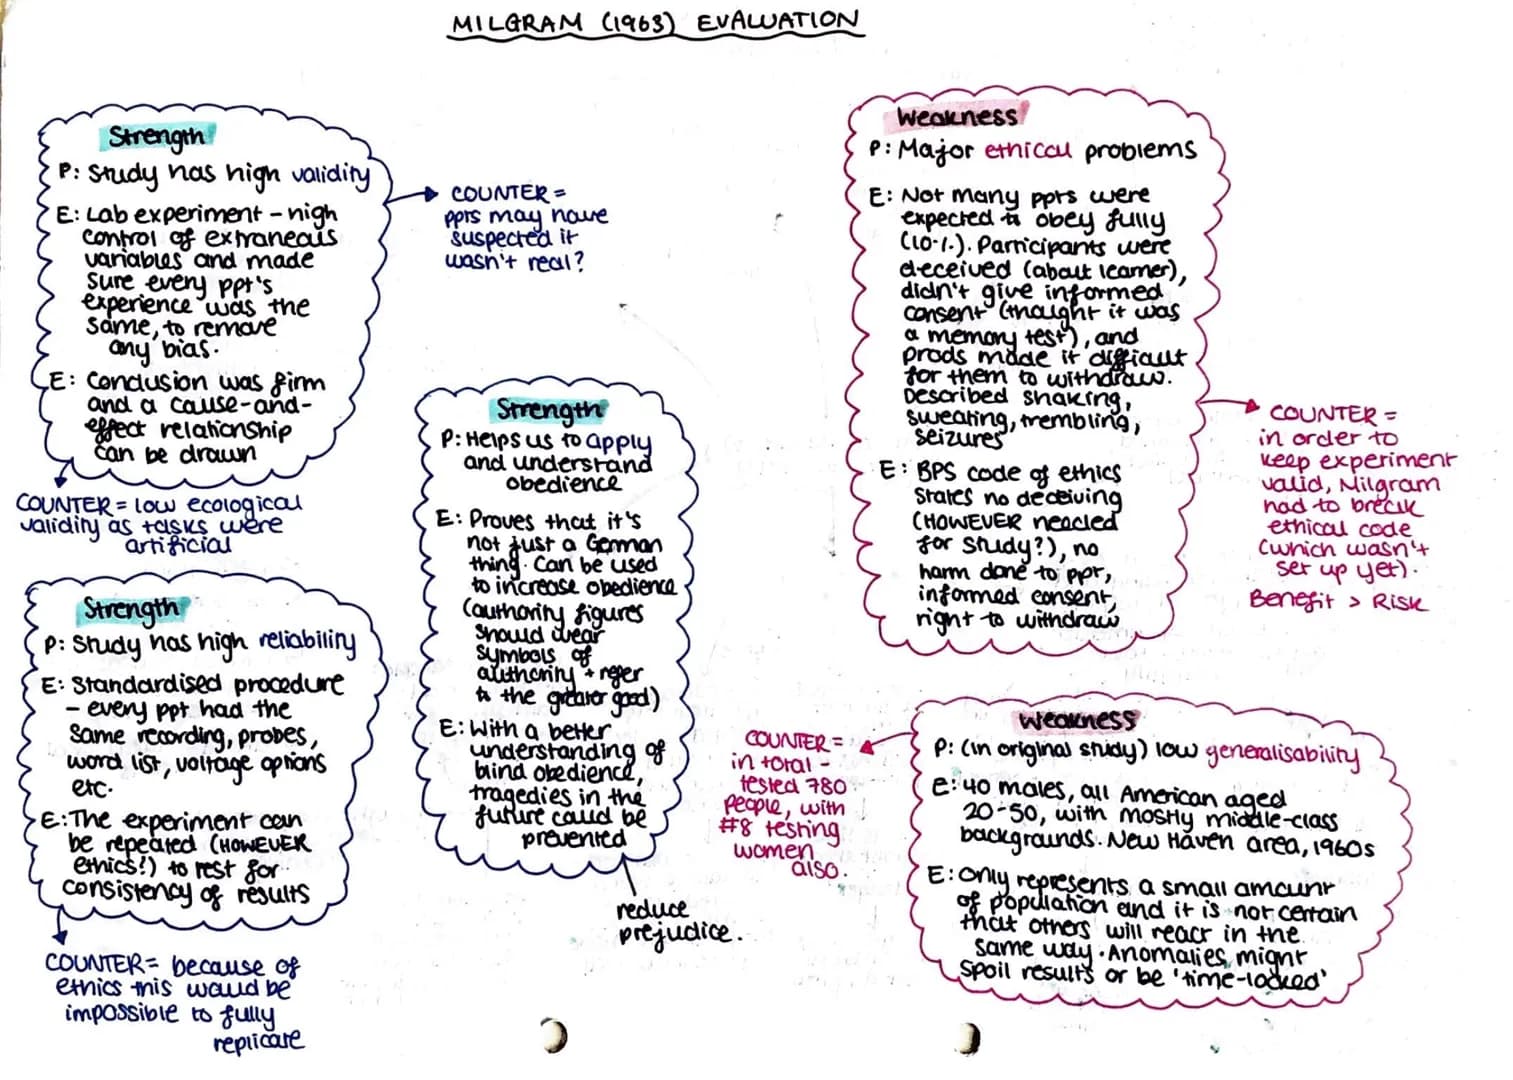 MILGRAM (1963) EVALUATION
Strength
P: Study has high validity
E: Lab experiment - high
control of extraneous
variables and made
sure every ppt's
experience was the
same, to remove
any bias.
E: Conclusion was firm
and a cause-and-
effect relationship
can be drawn
COUNTER =
ppts may have
suspected it
wasn't real?
COUNTER = low ecological
validity as tasks were
artificial
Strength
P: Study has high reliability
E: Standardised procedure
- every ppt had the
same recording, probes,
word list, voltage options
etc.
E: The experiment can
be repeated (HOWEVER
ethics!) to test for
consistency of results
COUNTER = because of
ethics this would be
impossible to fully
replicate
Strength
P: Helps us to apply
and understand
obedience
E: Proves that it's
not just a German
thing. Can be used
to increase obedience
(authority figures
should wear
symbols of
authority + refer
to the greater good)
E: With a better
understanding of
blind obedience,
tragedies in the
future could be
prevented
reduce
prejudice.
Weakness
P: Major ethical problems
E: Not many ppts were
expected to obey fully
(10%). Participants were
deceived (about learner),
didn't give informed
consent (thought it was
a memory test), and
prods made it difficult
for them to withdraw.
Described shaking,
sweating, trembling,
seizures
E: BPS code of ethics
states no deceiving
(HOWEVER needed
for study?), no
harm done to ppt,
informed consent,
right to withdraw
COUNTER =
in order to
keep experiment
valid, Milgram
had to break
ethical code
(which wasn't
set up yet).
Benefit > Risk
Weakness
P: (in original study) low generalisability
E: 40 males, all American aged
20-50, with mostly middle-class
backgrounds. New Haven area, 1960s
E: Only represents a small amount
of population and it is not certain
that others will react in the
same way. Anomalies might
spoil results or be 'time-locked'
COUNTER =
in total -
tested 780
people, with
#8 testing
women
also.